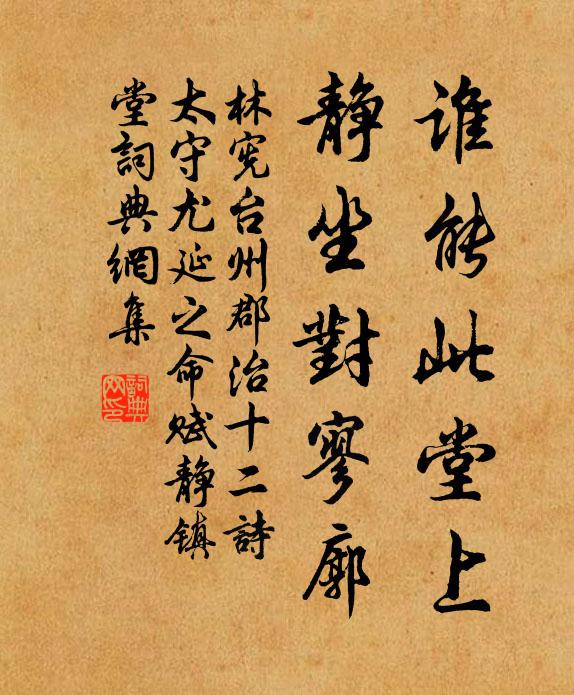 谁能此堂上
静坐對寥廓
林宪台州郡治十二詩
太守尤延之命赋静镇
堂詞典網集
詞典
网印